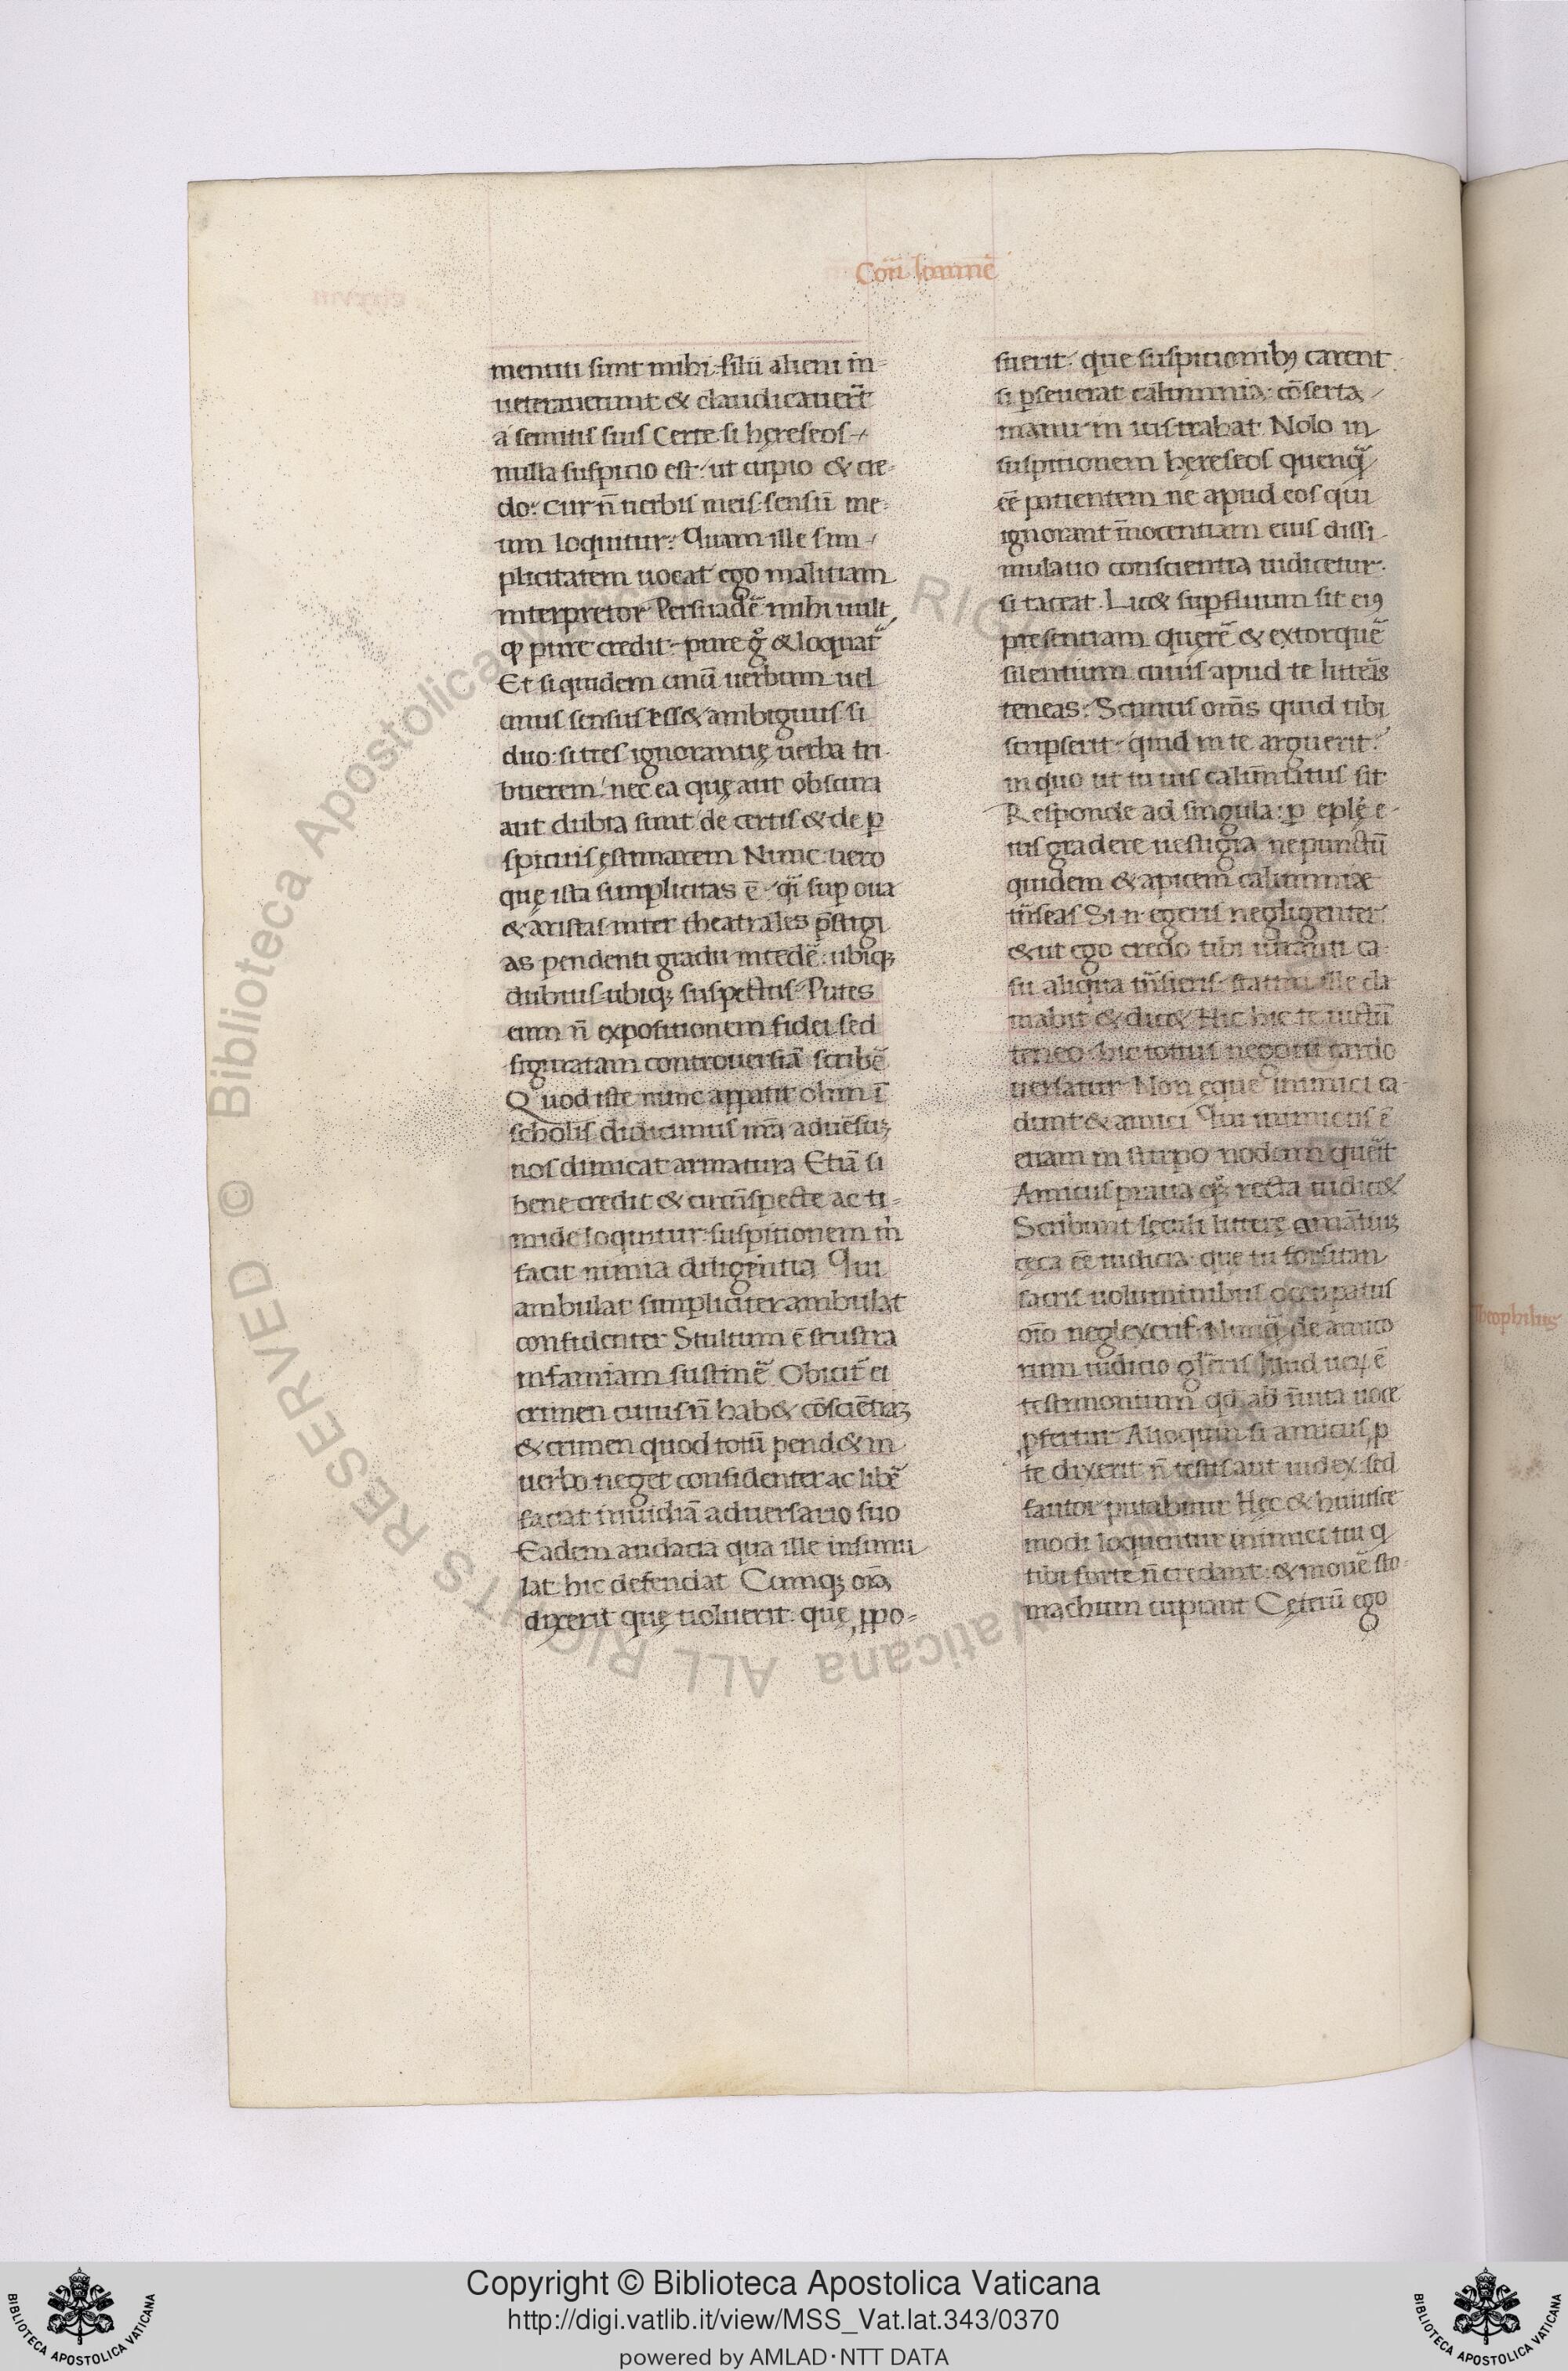 Con̄ Ioannē
mentiti sunt mihi: filii alieni in-
ueterauerunt & claudicauer̄t
a semitis suis Certe si hęreseos
nulla suspicio est: ut cupio & cre-
do: cur n̄ uerbis meis sensū me-
um loquitur: Quam ille sim-
plicitatem uocat ego malitiam
interpretor Persuadē mihi uult
ꝙ pure credit: pure g̊ & loquat᷑
Et si quidem unū uerbum uel
unus sensus ess& ambiguus: si
duo: si tres ignorantię uerba tri-
buerem: nec ea quę aut obscura
aut dubia sunt de certis & de ꝑ
spicuis ęstimarem Nunc uero
quę ista simplicitas ē qͣi suꝑ oua
& aristas inter theatrales p̄stigi
as pendenti gradu incedē: ubiqꝫ
dubius ubiqꝫ suspectus Putes
eum n̄ expositionem fidei sed
figuratam controuersiā scribē
Quod iste nunc appatit olim ī
scholis didicimus nr̄a aduēsuꝫ
nos dimicat armatura Etiā si
bene credit & circūspecte ac ti-
mide loquitur: suspitionem m̄
facit nimia diligentia Qui
ambulat simpliciter ambulat
confidenter Stultum ē frustra
infamiam sustinē Obicit᷑ ei
crimen cuius n̄ hab& cōsciētiaꝫ
& crimen quod totū pend& in
uerbo neget confidenter ac libē
faciat inuidiā aduersario suo
Eadem audacia qua ille insimu
lat hic defendat Cumqꝫ oīa
dixerit quę uoluerit: quę ꝓpo-
suerit: que suspitionibꝰ carent
si ꝑseuerat calumnia: cōserta
manu in ius trahat Nolo in
suspitionem hęreseos quenqͣ̄
eē patientem ne apud eos qui
ignorant īnocentiam eius dissi
mulatio conscientia iudicetur
si taceat Lic& suꝑfluum sit eiꝰ
presentiam querē & extorquē
silentium cuius apud te litterās
teneas: Scimus om̄s quid tibi
scripserit: quid in te arguerit:
in quo ut tu uis calūniatus sit
Responde ad singula: ꝑ eplę e-
ius gradere uestigia ne punctū
quidem & apicem calumniæ
trn̄seas Si n̄ egeris negligenter
& ut ego credo tibi iurāti ca-
su aliqua trn̄sieris: statim ille cla
mabit & dic& Hic hic te uictū
teneo: hic totius negotii cardo
uersatur Non ęque inimici ca-
dunt & amici Qui inimicus ē
etiam in scirpo nodum querit
Amicus praua qͦꝫ recta iudic&
Scribunt sęculi litterę amātiuꝫ
cęca eē iudicia que tu forsitan
sacris uoluminibus occupatus
oīo neglexeris Nunqͣ̄ de amico
rum iudicio gl̄eris Illud ueꝝ ē
testimonium qd̄ ab īimica uoce
ꝓfertur Alioquin si amicus ꝓ
te dixerit n̄ testis aut iudex sed
fautor putabitur Hęc & huiusce
modi loquentur inimici tui q
tibi forte n̄ credant: & mouē sto-
machum cupiunt Ceterū ego
Theophilus
Copyright © Biblioteca Apostolica Vaticana
http://digi.vatlib.it/view/MSS_Vat.lat.343/0370
powered by AMLAD·NTT DATA
BIBLIOTECA APOSTOLICA VATICANA
BIBLIOTECA APOSTOLICA VATICANA
Biblioteca Apostolica Vaticana ALL RIGHTS RESERVED ©